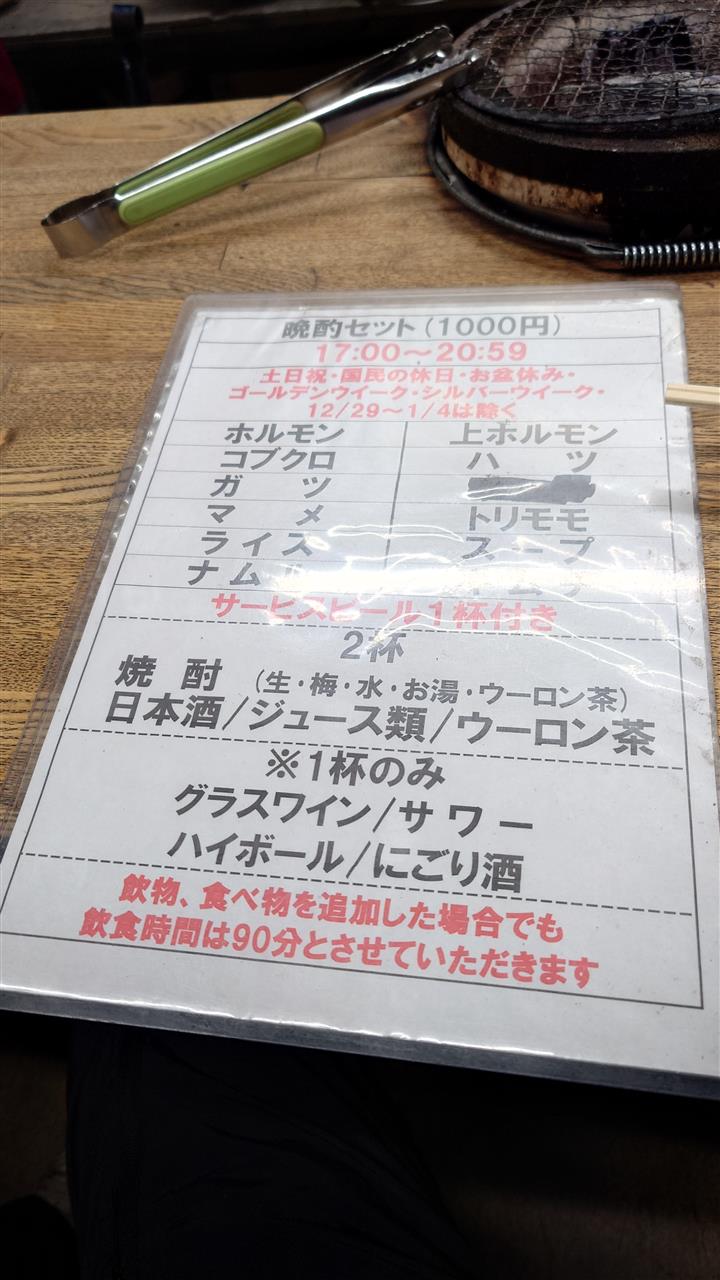 晩酌セット(1000円)
17:00～20:59
土日祝・国民の休日・お盆休み・
ゴールデンウイーク・シルバーウイーク・
12/29～1/4は除く
ホルモン 上ホルモン
コブクロ ハツ
ガツ
マメ トリモモ
ライス スープ
ナムル
サービスビール1杯付き
2杯
焼酎 (生・梅・水・お湯・ウーロン茶)
日本酒/ジュース類/ウーロン茶
※1杯のみ
グラスワイン/サワー
ハイボール/にごり酒
飲物、食べ物を追加した場合でも
飲食時間は90分とさせていただきます